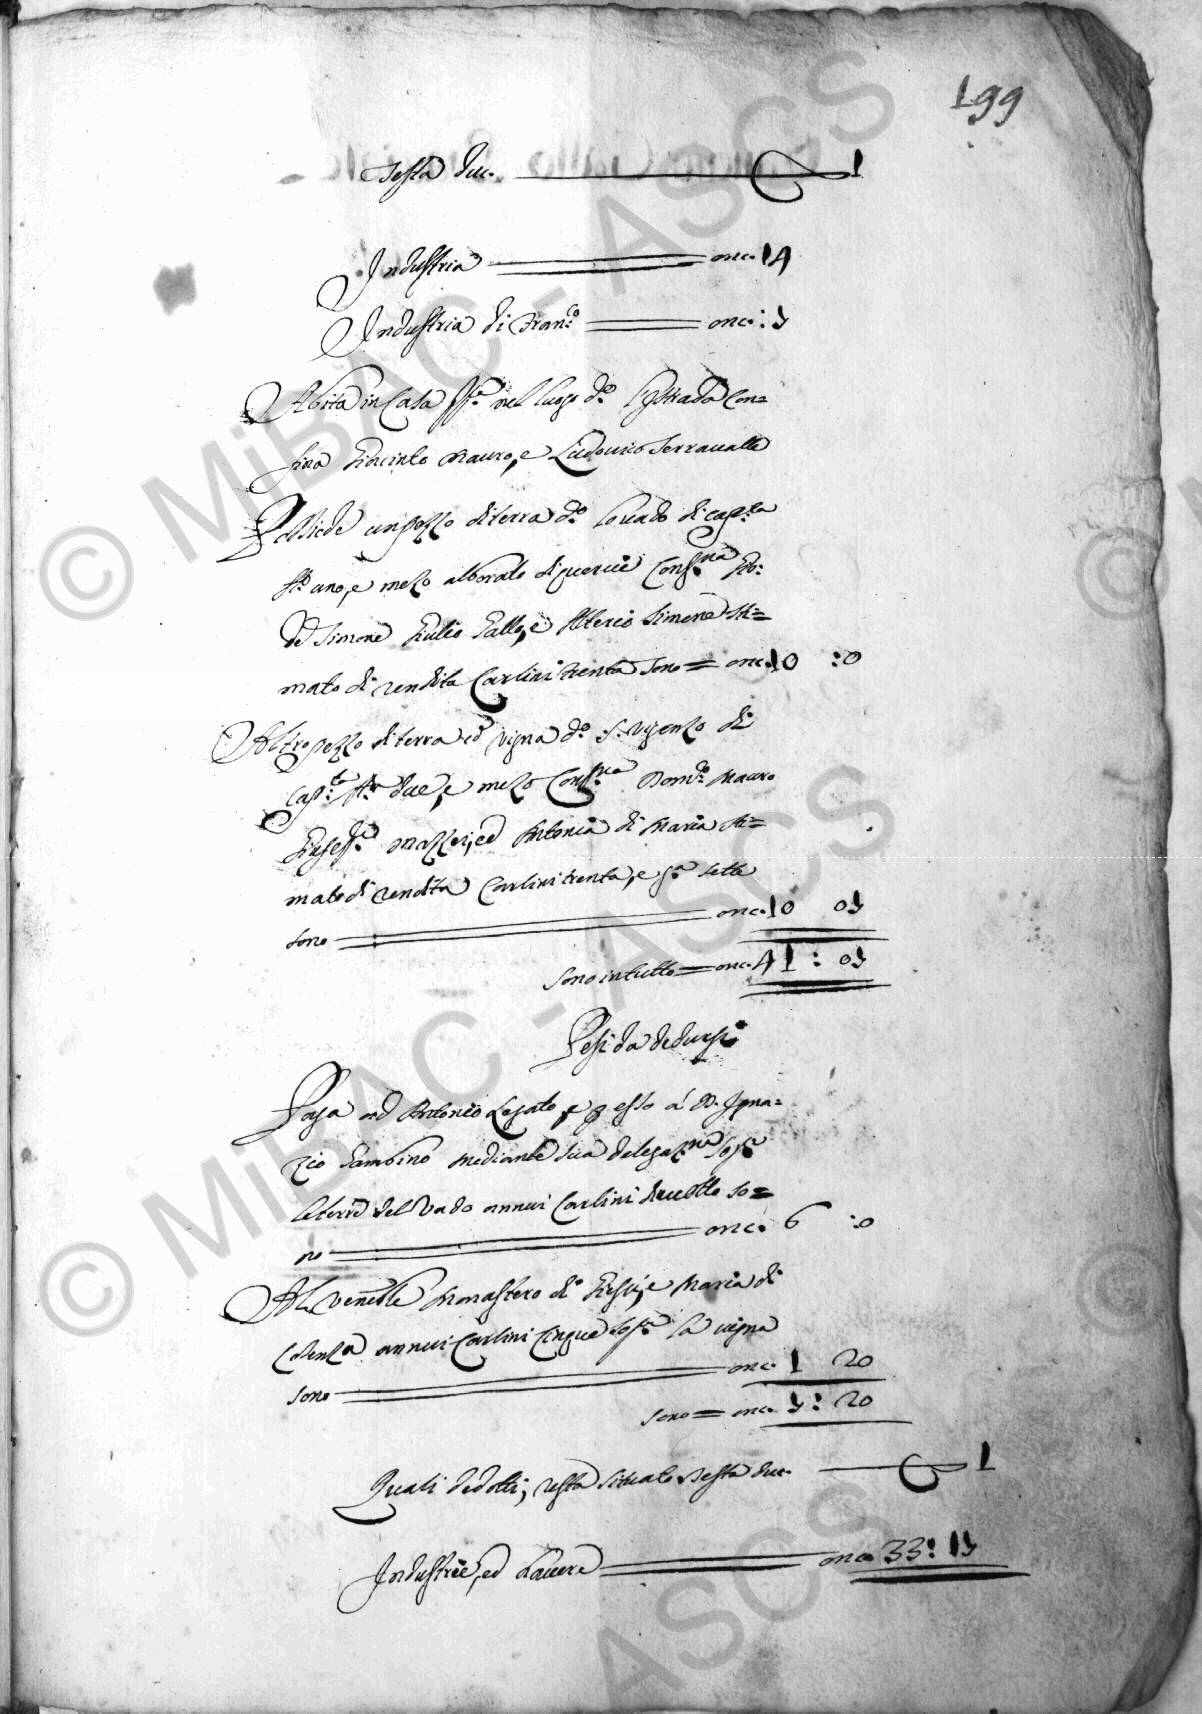 199
Testa duc. 1
Industria onc. 14
Industria di Fran.co onc: 7
Abita in Casa pp.a nel luogo d.o l'Istrada con=
fina Giacinto Mauro, e Ludovico Serravalle
Possiede un pezzo di terra d.o lo Vado di cap.ta
tt. uno, e mezo alborato di quercie conf.na
de Simone Giulio Gallo, e Alterio Simone sti=
mato di rendita Carlini trenta sono = onc. 10 :0
Altro pezzo di terra ed vigna d.o S. Vigenzo di
cap.tà due, e mezo conf.na Dom.co Mauro
Giusep.e Mazzei, ed Antonia di Maria sti=
mato di rendita Carlini trenta, e g.a sette
sono onc. 10 05
Sono in tutto = onc. 41 : 05
Pesi da dedursi
Paga ad Antonio Legato, e p esso a D. Igna=
zio Gambino mediante sua delegaz.ne sop.a
le terre del Vado annui Carlini dieceotto so=
no onc. 6 :0
Al Venerble Monastero di Giesù, e Maria di
Cosenza annui Carlini cinque sop.a la vigna
sono onc. 1 20
sono = onc. 7: 20
Quali dedotti, resta situato Testa duc. 1
Industrie, ed havere onc. 33: 15